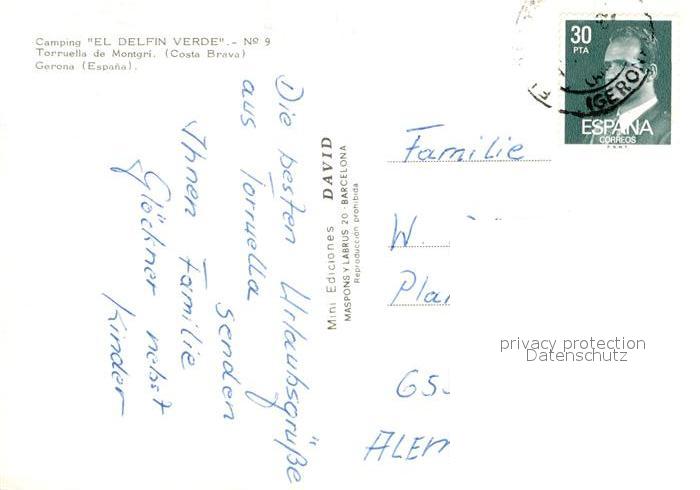 Camping "EL DELFIN VERDE".- Nº 9
Torruella de Montgrí. (Costa Brava)
Gerona (España).
Die besten Urlaubsgrüße
aus Torruella
senden
Ihnen Familie
Glöckner nebst
Kinder
Mini Ediciones DAVID
MASPONS Y LABRUS 20 - BARCELONA
Reproducción prohibida
30
PTA
ESPAÑA
CORREOS
F.N.M.T.
(GERONA
Familie
W.
Pla
65
ALEM
privacy protection
Datenschutz